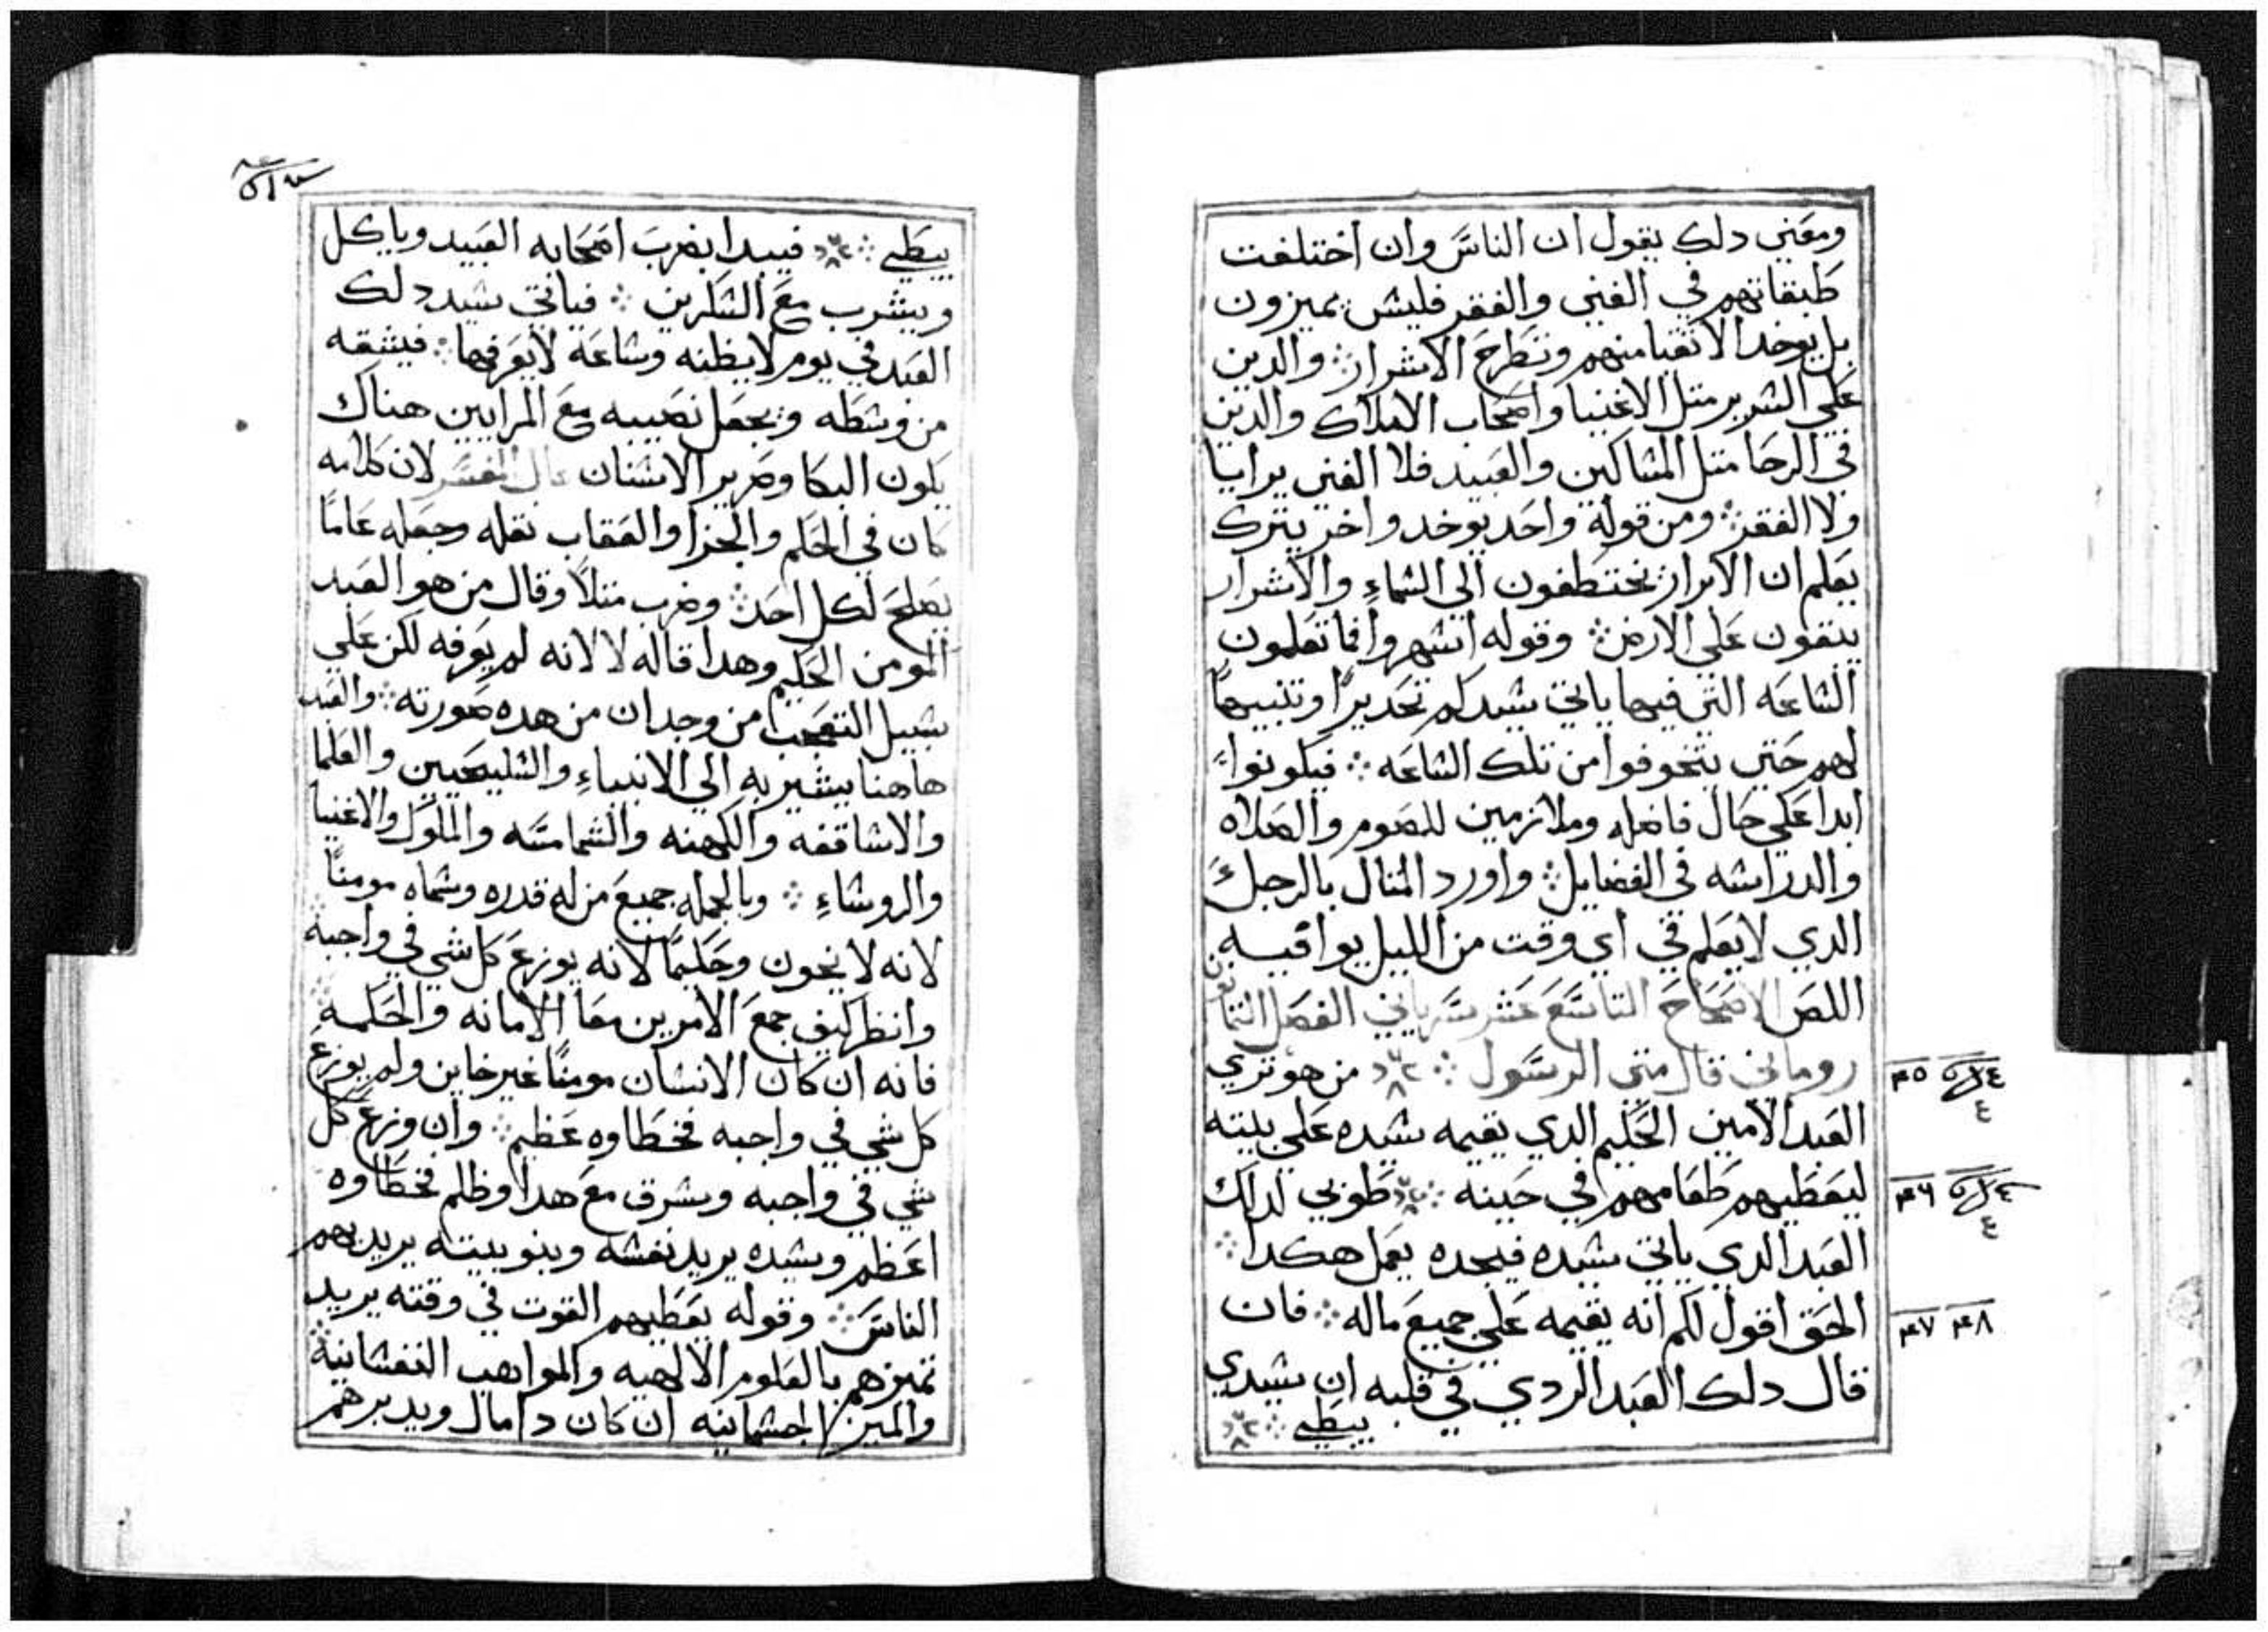 ومعني دلك يقول ان الناس وان اختلفت
طبقاتهم في الغني والفقر فليس يميزون
بل يوخد الاتقيا منهم وتطرح الاشرار والدين
علي السرير متل الاغنيا واصحاب الاملاك والدين
في الرحا متل المساكين والعبيد فلا الغني يرايا
ولا الفقر ومن قوله واحد يوخد واخر يترك
يعلم ان الابرار يختطفون الي السماء والاشرار
يبقون علي الارض وقوله اسهروا فما تعلمون
الساعه التي فيها ياتي سيدكم تحديرا وتنبيها
لهم حتي يتخوفوا من تلك الساعه فيكونوا
ابدا علي حال فاضله وملازمين للصوم والصلاه
والدراسه في الفضايل واورد المتال بالرجل
الدي لا يعلم في اي وقت من الليل يوافيه
اللص الاصحاح التاسع عشر سرياني الفصل التمانون
روماني قال متي الرسول من هو تري
العبد الامين الحكيم الدي يقيمه سيده علي بيته
ليعطيهم طعامهم في حينه طوبي لداك
العبد الدي ياتي سيده فيجده يعمل هكدا
الحق اقول لكم انه يقيمه علي جميع ماله فان
قال دلك العبد الردي في قلبه ان سيدي
يبطي
٤٥
٤
٤٦
٤
٤٧ ٤٨
يبطي فيبدا يضرب اصحابه العبيد وياكل
ويشرب مع السكرين فياتي سيد دلك
العبد في يوم لا يظنه وساعه لا يعرفها فيشقه
من وسطه ويجعل نصيبه مع المرايين هناك
يكون البكا وصرير الاسنان قال المفسر لان كلامه
كان في الحكم والجزا والعقاب نقله وجعله عاما
يصلح لكل احد وضرب متلا وقال من هو العبد
المومن الحكيم وهدا قاله لا لانه لم يعرفه لكن علي
سبيل التعجب من وجدان من هده صورته والعبد
هاهنا يشير به الي الانبياء والسليحيين والعلما
والاساقفه والكهنه والشمامسه والملوك والاغنيا
والروساء وبالجمله جميع من له قدره وسماه مومنا
لانه لا يخون وحكيما لانه يوزع كل شي في واجبه
وانظر كيف جمع الامرين معا الامانه والحكمه
فانه ان كان الانسان مومنا غير خاين ولم يوزع
كل شي في واجبه فخطاوه عظيم وان وزع كل
شي في واجبه وسرق مع هدا وظلم فخطاوه
اعظم وسيده يريد نفسه وبنو بيته يريد بهم
الناس وقوله يعطيهم القوت في وقته يريد
تميزهم بالعلوم الالهيه والمواهب النفسانيه
والمير الجسمانيه ان كان دا مال ويدبرهم